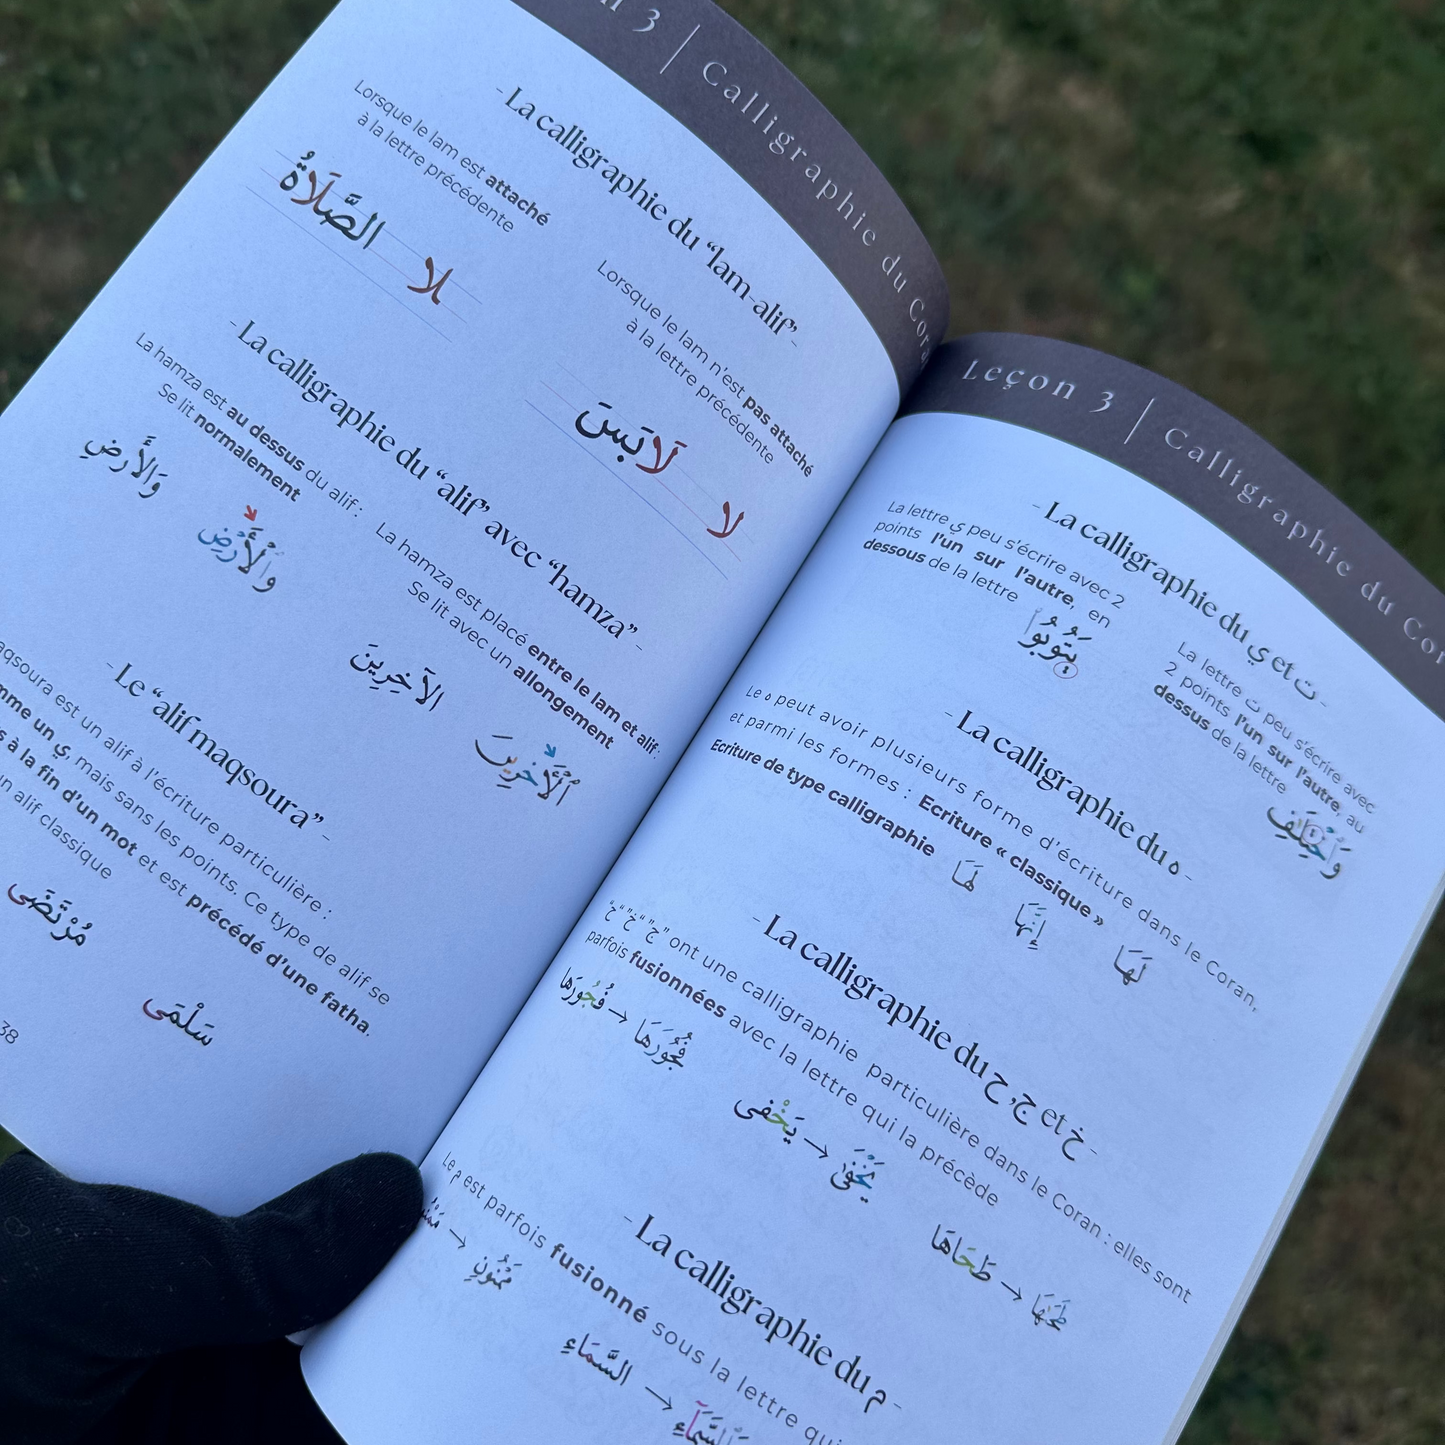 3 | Calligraphie du Cora
- La calligraphie du “lam-alif” -
Lorsque le lam est attaché
à la lettre précédente
الصَّلَاةُ
لا
Lorsque le lam n’est pas attaché
à la lettre précédente
لَابَسَ
لا
- La calligraphie du “alif” avec “hamza” -
La hamza est au dessus du alif :
Se lit normalement
وَالأَرضِ
وَٱلْأَرْضِ
La hamza est placé entre le lam et alif:
Se lit avec un allongement
الآخِرِينَ
ٱلْأَخِرِينَ
- Le “alif maqsoura” -
aqsoura est un alif à l’écriture particulière :
mme un ي, mais sans les points. Ce type de alif se
s à la fin d’un mot et est précédé d’une fatha.
un alif classique
مُرْتَضَى
سَلْمَى
38
Leçon 3 | Calligraphie du Cor
- La calligraphie du ي et ت -
La lettre ي peu s’écrire avec 2
points l’un sur l’autre, en
dessous de la lettre
يَتُوبُوا۟
La lettre ت peu s’écrire avec
2 points l’un sur l’autre, au
dessus de la lettre
- La calligraphie du ه -
Le ه peut avoir plusieurs forme d’écriture dans le Coran,
et parmi les formes : Ecriture « classique »
Ecriture de type calligraphie
لَهَا
إِنَّهَا
لَهَا
- La calligraphie du ح ,ج et خ -
“ح” “ج” “خ” ont une calligraphie particulière dans le Coran : elles sont
parfois fusionnées avec la lettre qui la précède
فُجُورَها → فُجُورَهَا
يَخْفى → يَخْفَىٰ
طَحَاهَا → طَحَىٰهَا
- La calligraphie du م -
Le م est parfois fusionné sous la lettre qui
→ مَمْنُونٍ
السَّمَاءِ → ٱلسَّمَآءِ